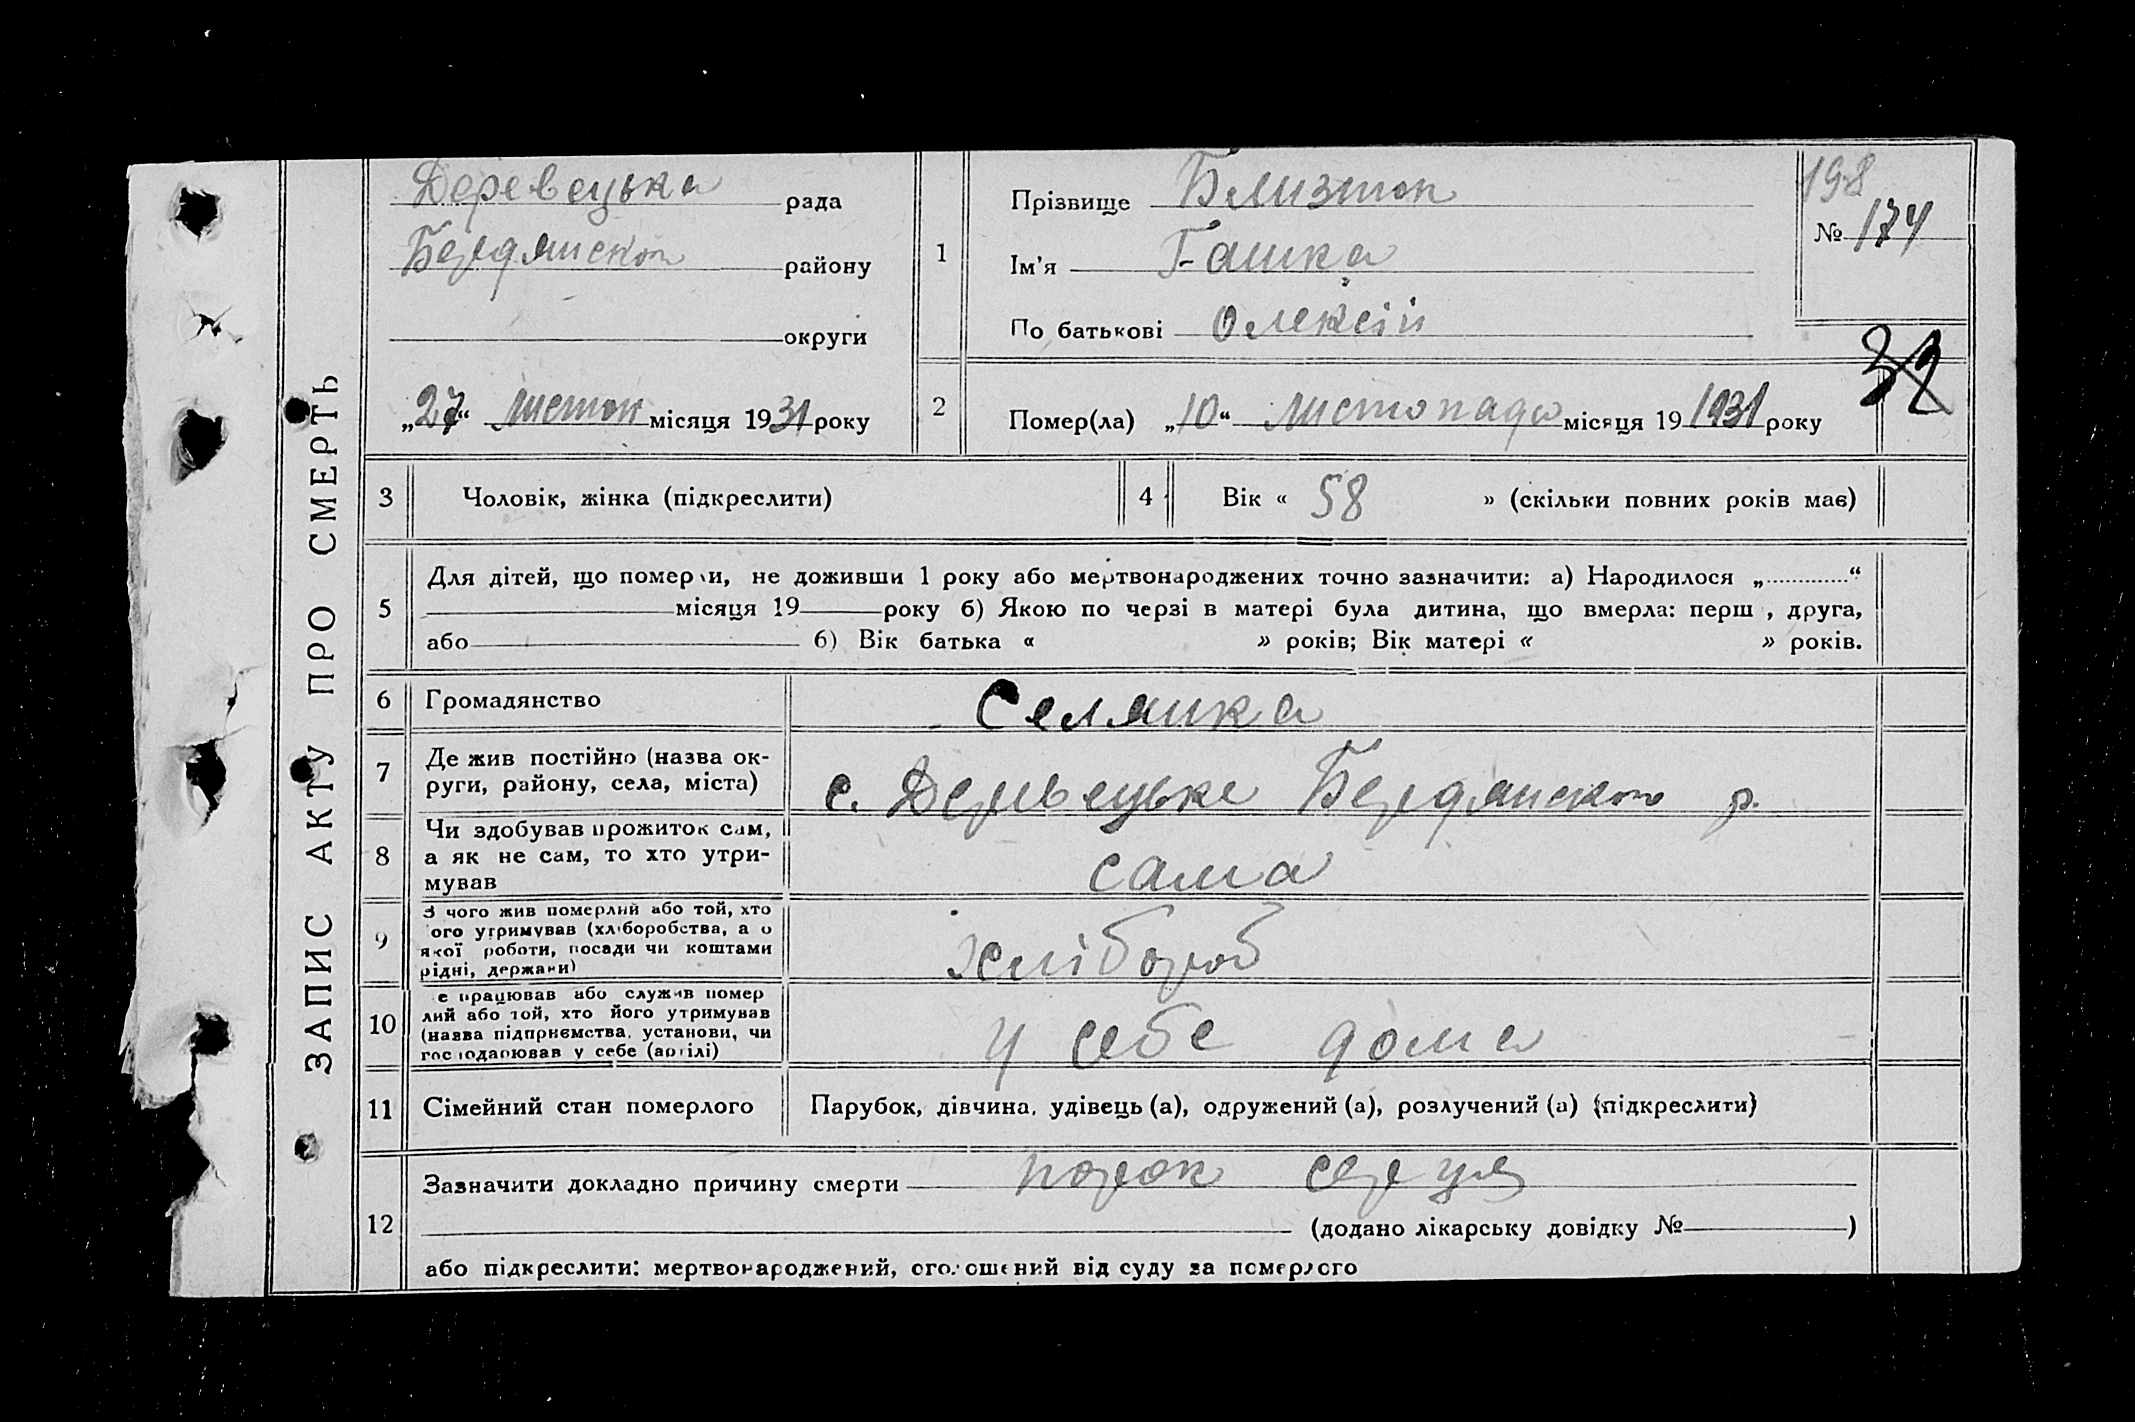 ЗАПИС АКТУ ПРО СМЕРТЬ
Деревецька рада
району
округи
„27“ листоп місяця 1931 року
1
Прізвище Близнюк
Ім'я Гашка
По батькові Олексій
198
№ 174
32
2
Помер(ла) „10“ листопада місяця 19 1931 року
3
Чоловік, жінка (підкреслити)
4
Вік « 58 » (скільки повних років має)
5
Для дітей, що померли, не доживши 1 року або мертвонароджених точно зазначити: а) Народилося „ “
місяця 19 року б) Якою по черзі в матері була дитина, що вмерла: перш , друга,
або б) Вік батька « » років; Вік матері « » років.
6
Громадянство
Селянка
7
Де жив постійно (назва ок-
руги, району, села, міста)
с. Деревецьке р.
8
Чи здобував прожиток сам,
а як не сам, то хто утри-
мував
сама
9
З чого жив померлий або той, хто
ого утримував (хліборобства, а о
якої роботи, посади чи коштами
рідні, держави)
хлібороб
10
е працював або служив помер
лий або той, хто його утримував
(назва підприємства, установи, чи
господарював у себе (артілі)
у себе дома
11
Сімейний стан померлого
Парубок, дівчина, удівець (а), одружений (а), розлучений (а) (підкреслити)
12
Зазначити докладно причину смерти порок серця
(додано лікарську довідку № )
або підкреслити: мертвонароджений, оголошений від суду за померлого